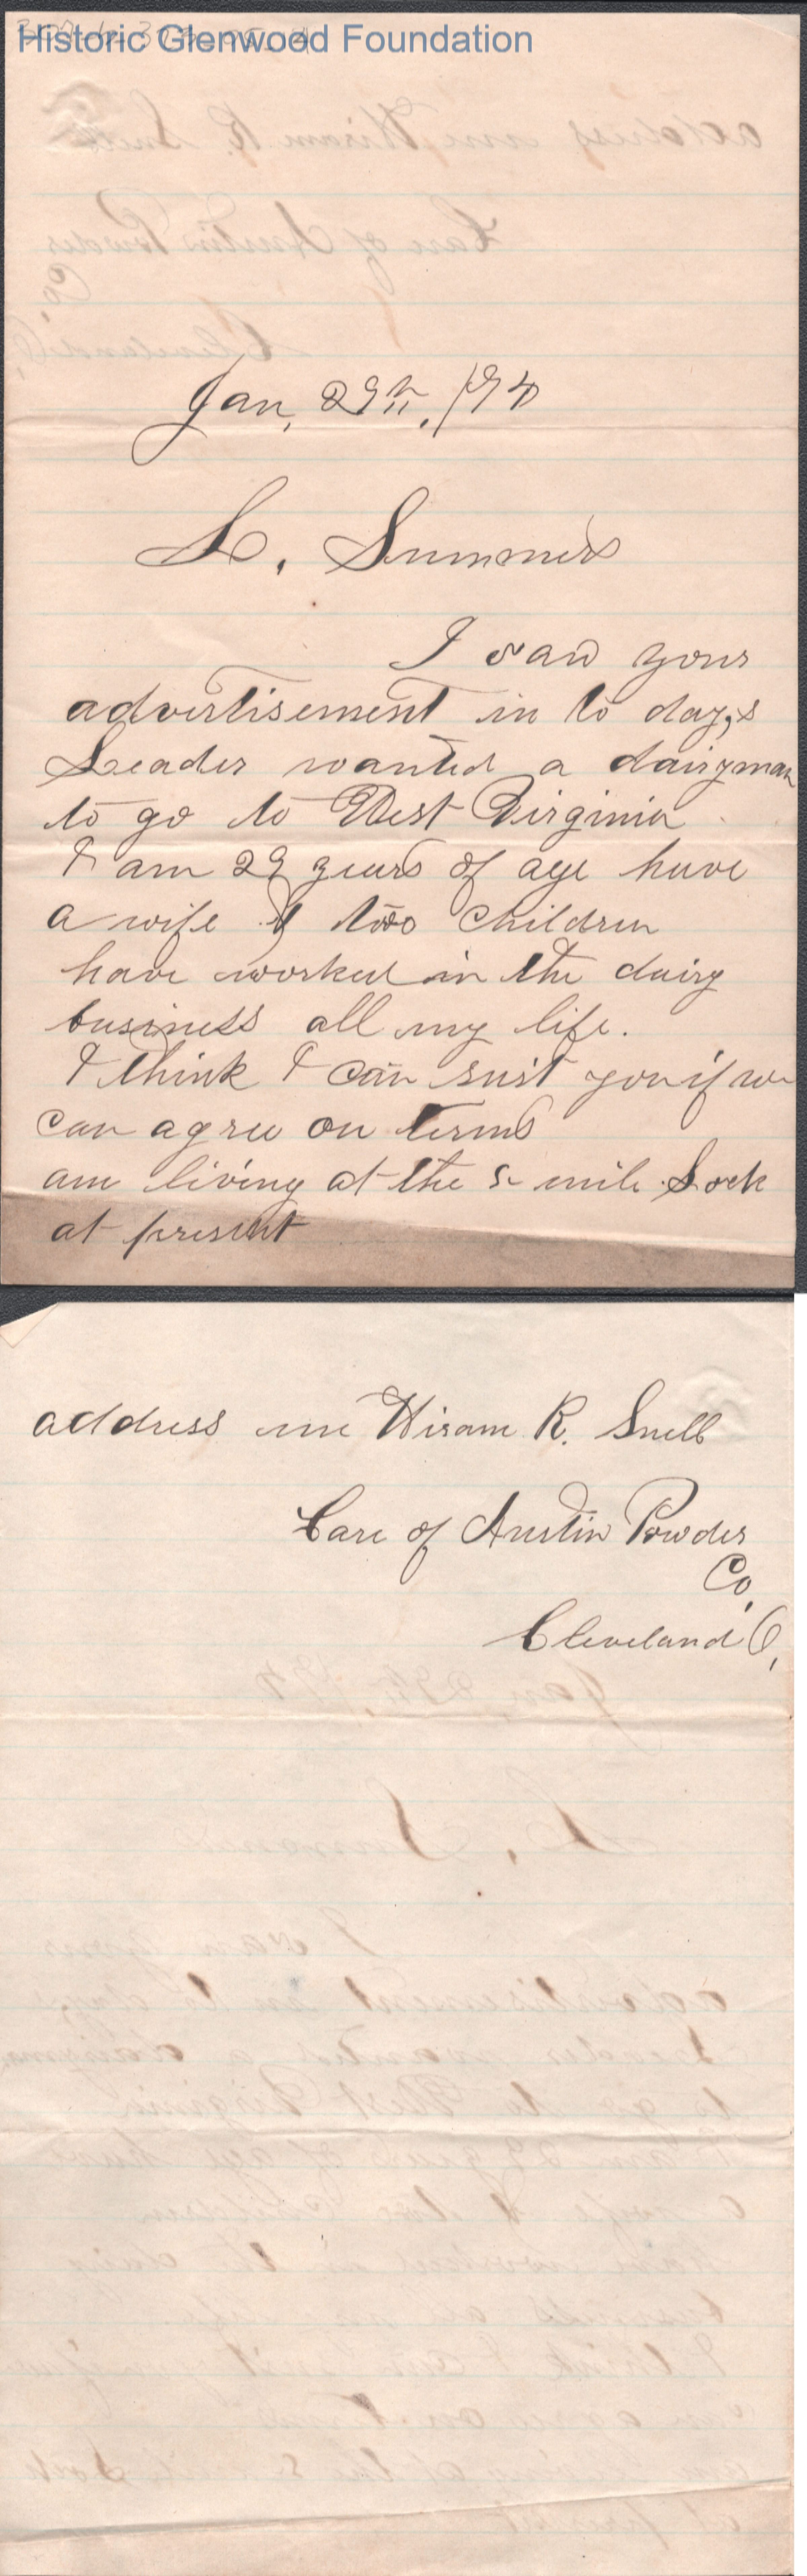 Historic Glenwood Foundation
Jan, 29th, /94
L. Summers
I saw your
advertisement in to day,s
Leader wanted a dairyman
to go to West Virginia
I am 29 years of age have
a wife & two children
have worked in the dairy
business all my life.
I think I can suit you if we
can agree on terms
am living at the 5 mile Lock
at present
address me Hiram R. Snell
Care of Austin Powder
Co,
Cleveland O,